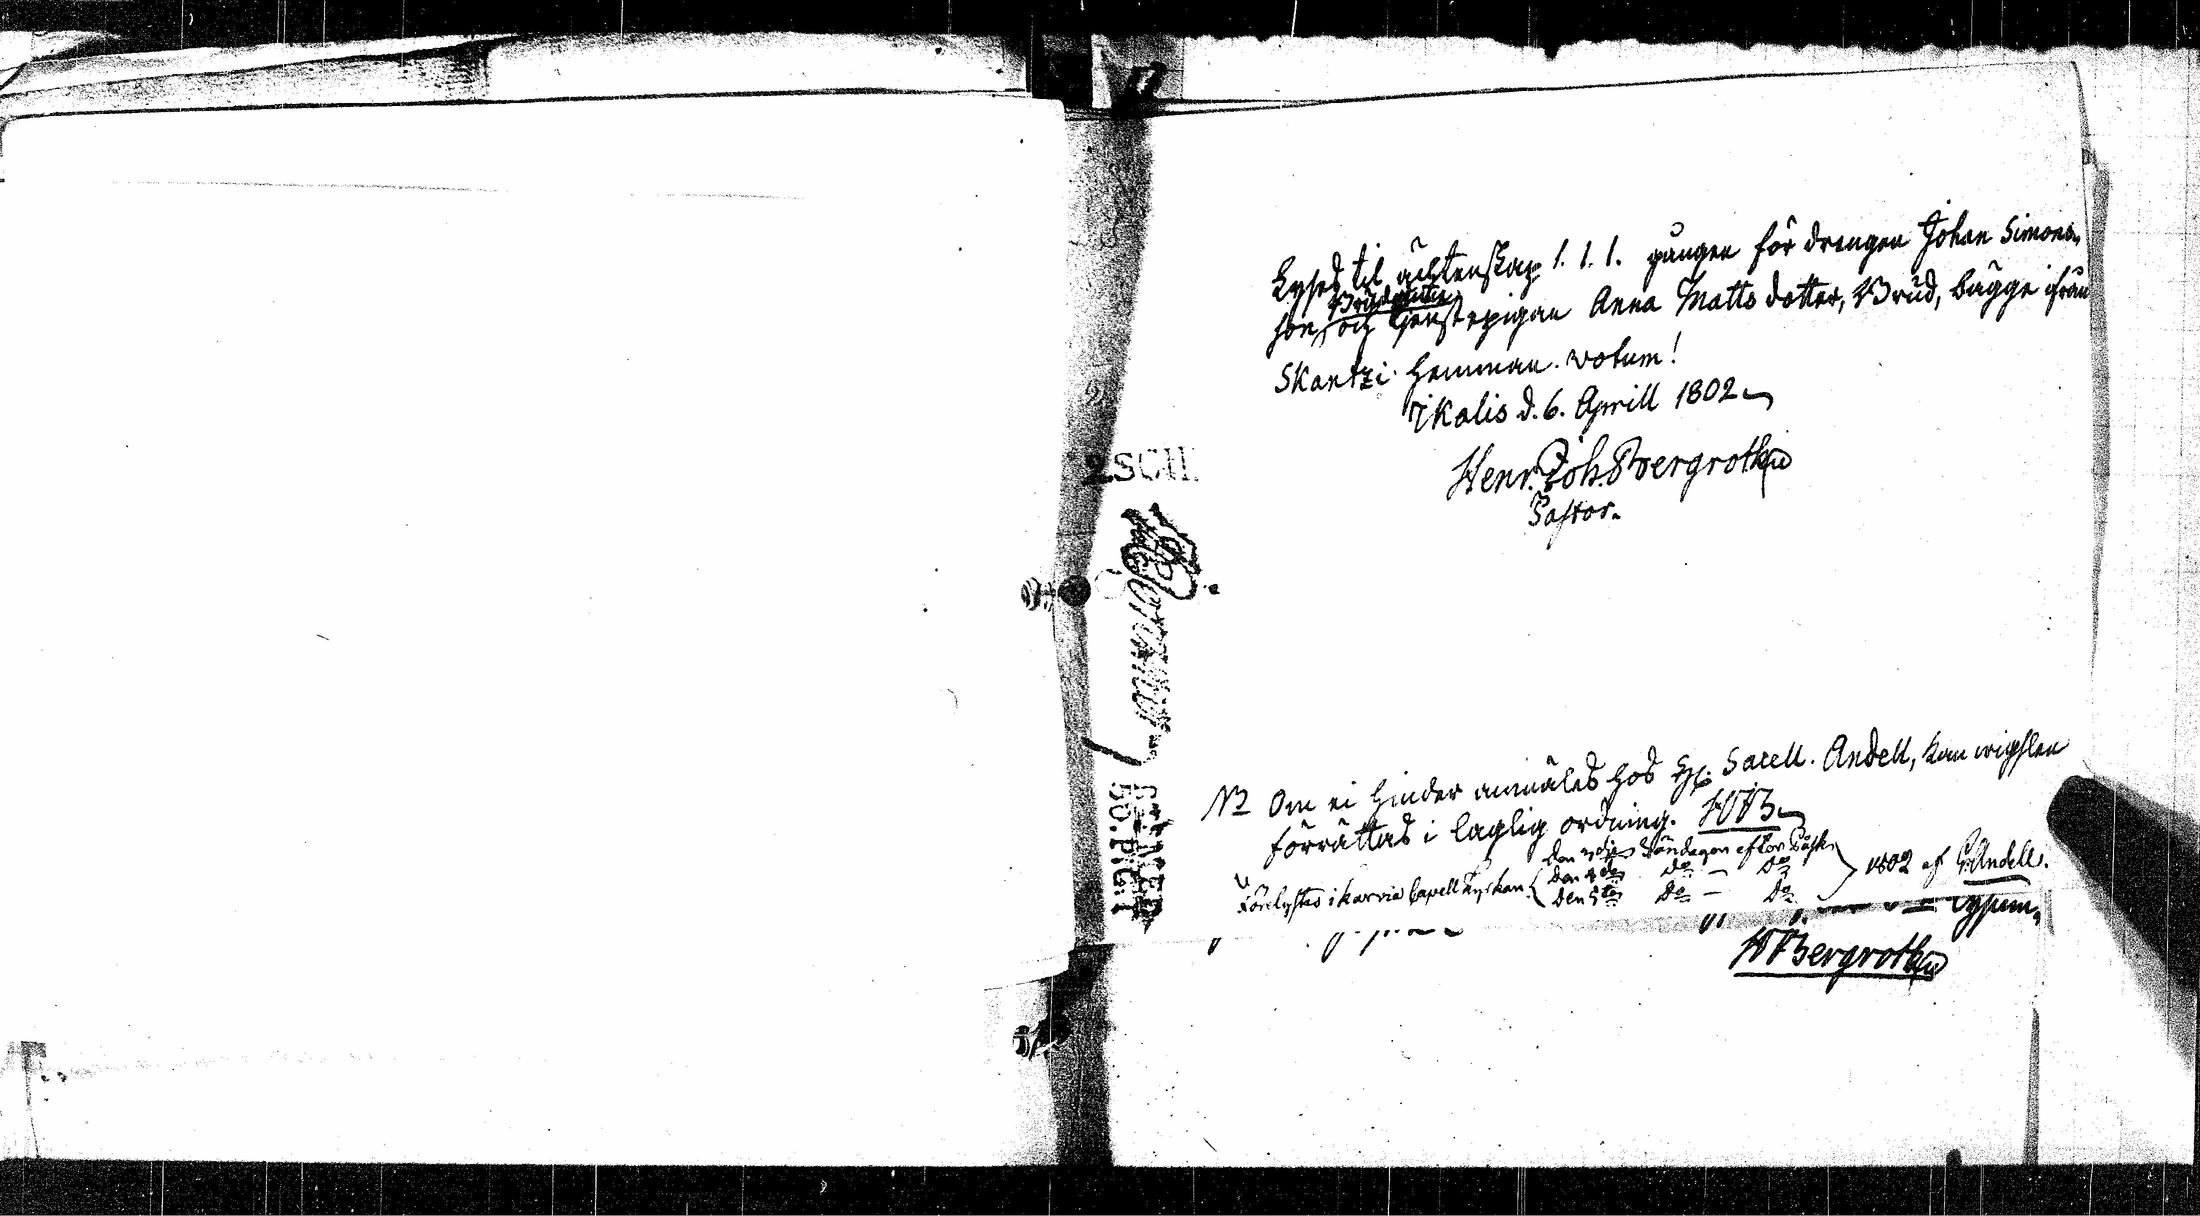 Lyses til äcktenskap 1. 1. 1. gången för drengen Johan Simons-
Brudgumme
son, och tjenstepigan Anna Matts dotter, Brud, bägge ifrån
Skantzi hemman. votum!
Ikalis d. 6. Aprill 1802
Henr. Joh. Bergroth
Pastor.
2 SCH
NB Om ei hinder anmäles hos H. Sacell. Andell, kan wigslen
förrättas i laglig ordning. HJB
Förelystes i Karvia Capell Kyrkan den 3dje Söndagen efter Påsk
den 4de Do — Do
den 5te Do — Do
1802 af G. Andell.
HJBergroth